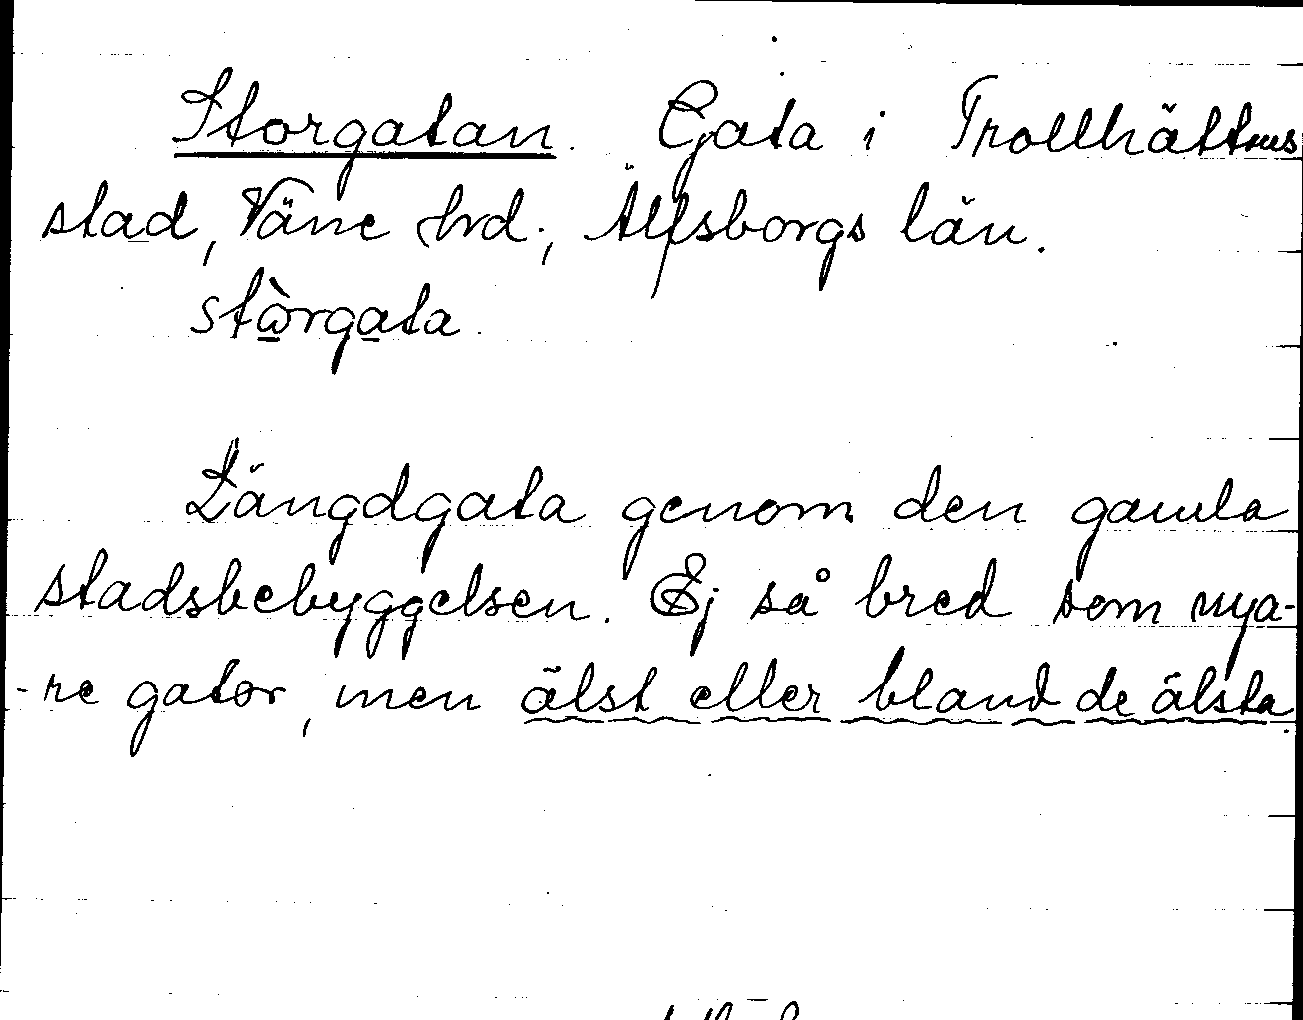 Storgatan. Gata i Trollhättans
stad, Väne hrd., Älfsborgs län.
stòrgata
Längdgata genom den gamla
stadsbebyggelsen. Ej så bred som nya-
-re gator, men älst eller bland de älsta.